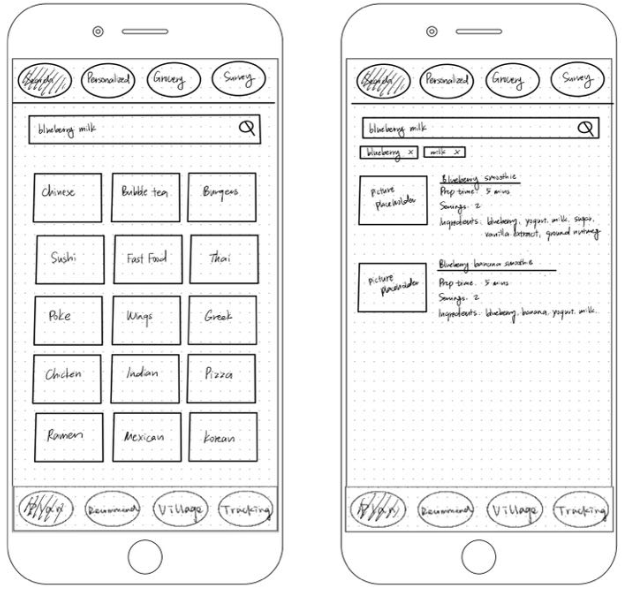 Search Personalized Grocery Survey
blueberry milk
Chinese Bubble tea Burgers
Sushi Fast Food Thai
Poke Wings Greek
Chicken Indian Pizza
Ramen Mexican Korean
Plan Recommend Village Tracking
Search Personalized Grocery Survey
blueberry milk
blueberry x milk x
Picture
placeholder
Blueberry smoothie
Prep time: 5 mins
Servings: 2
Ingredients: blueberry, yogurt, milk, sugar,
vanilla extract, ground nutmeg
Picture
placeholder
Blueberry banana smoothie
Prep time: 5 mins
Servings: 2
Ingredients: blueberry, banana, yogurt, milk
Plan Recommend Village Tracking